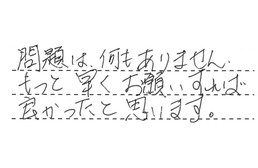 問題は、何もありません.
もっと早くお願いすれば
良かったと思います。